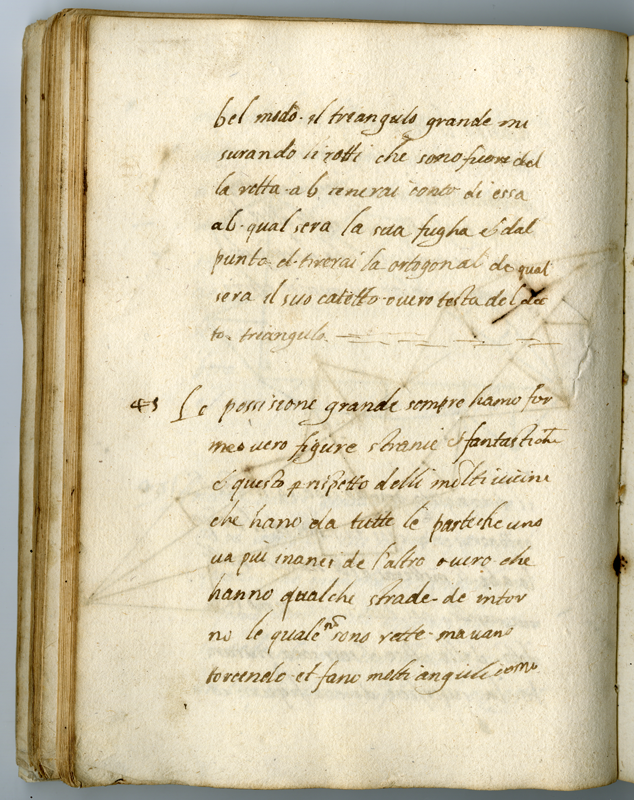 bel modo. il triangulo grande mi
surando li rotti che sono fuore del
la retta. ab. tenerai conto di essa
ab. qual sera la sua fugha et dal
punto. d. tirerai la ortogonal de qual
sera il suo catetto. overo testa del det
to. triangulo.
43 Le possisione grande sempre hanno for
me overo figure stranie et fantastiche
et questo p rispetto delli molti vicini
che hano da tutte le parte che uno
va più inanci de l'altro overo che
hanno qualche strade. de intor
no le quale no sono rette ma vano
torcendo et fano molti anguli como